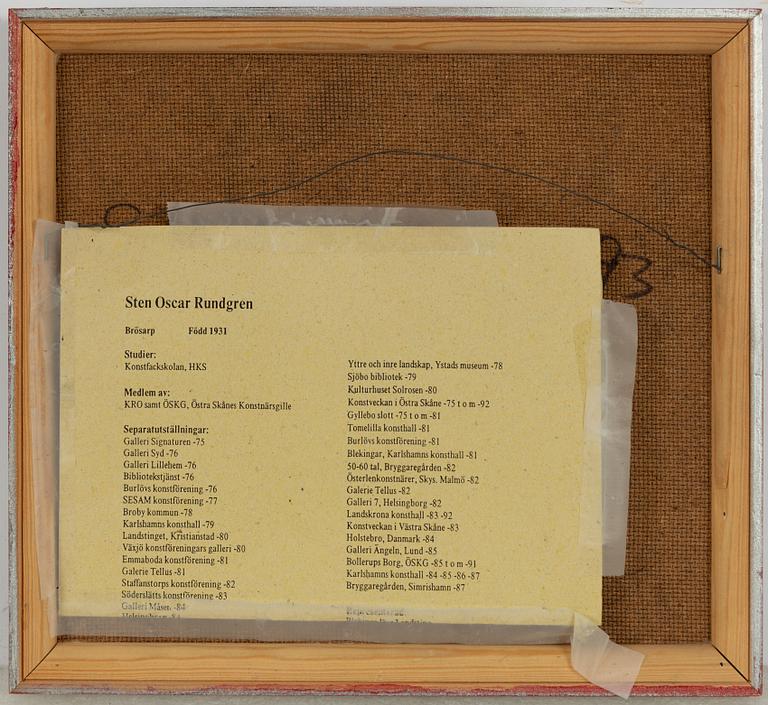 Sten Oscar Rundgren
Brösarp Född 1931
Studier:
Konstfackskolan, HKS
Medlem av:
KRO samt ÖSKG, Östra Skånes Konstnärsgille
Separatutställningar:
Galleri Signaturen -75
Galleri Syd -76
Galleri Lillehem -76
Bibliotekstjänst -76
Burlövs konstförening -76
SESAM konstförening -77
Broby kommun -78
Karlshamns konsthall -79
Landstinget, Kristianstad -80
Växjö konstföreningars galleri -80
Emmaboda konstförening -81
Galerie Tellus -81
Staffanstorps konstförening -82
Söderslätts konstförening -83
Galleri Måsen -84
Helsingborg -84
Yttre och inre landskap, Ystads museum -78
Sjöbo bibliotek -79
Kulturhuset Solrosen -80
Konstveckan i Östra Skåne -75 t o m -92
Gyllebo slott -75 t o m -81
Tomelilla konsthall -81
Burlövs konstförening -81
Blekingar, Karlshamns konsthall -81
50-60 tal, Bryggaregården -82
Österlenkonstnärer, Skys. Malmö -82
Galerie Tellus -82
Galleri 7, Helsingborg -82
Landskrona konsthall -83 -92
Konstveckan i Västra Skåne -83
Holstebro, Danmark -84
Galleri Ängeln, Lund -85
Bollerups Borg, ÖSKG -85 t o m -91
Karlshamns konsthall -84 -85 -86 -87
Bryggaregården, Simrishamn -87
Representerad:
93